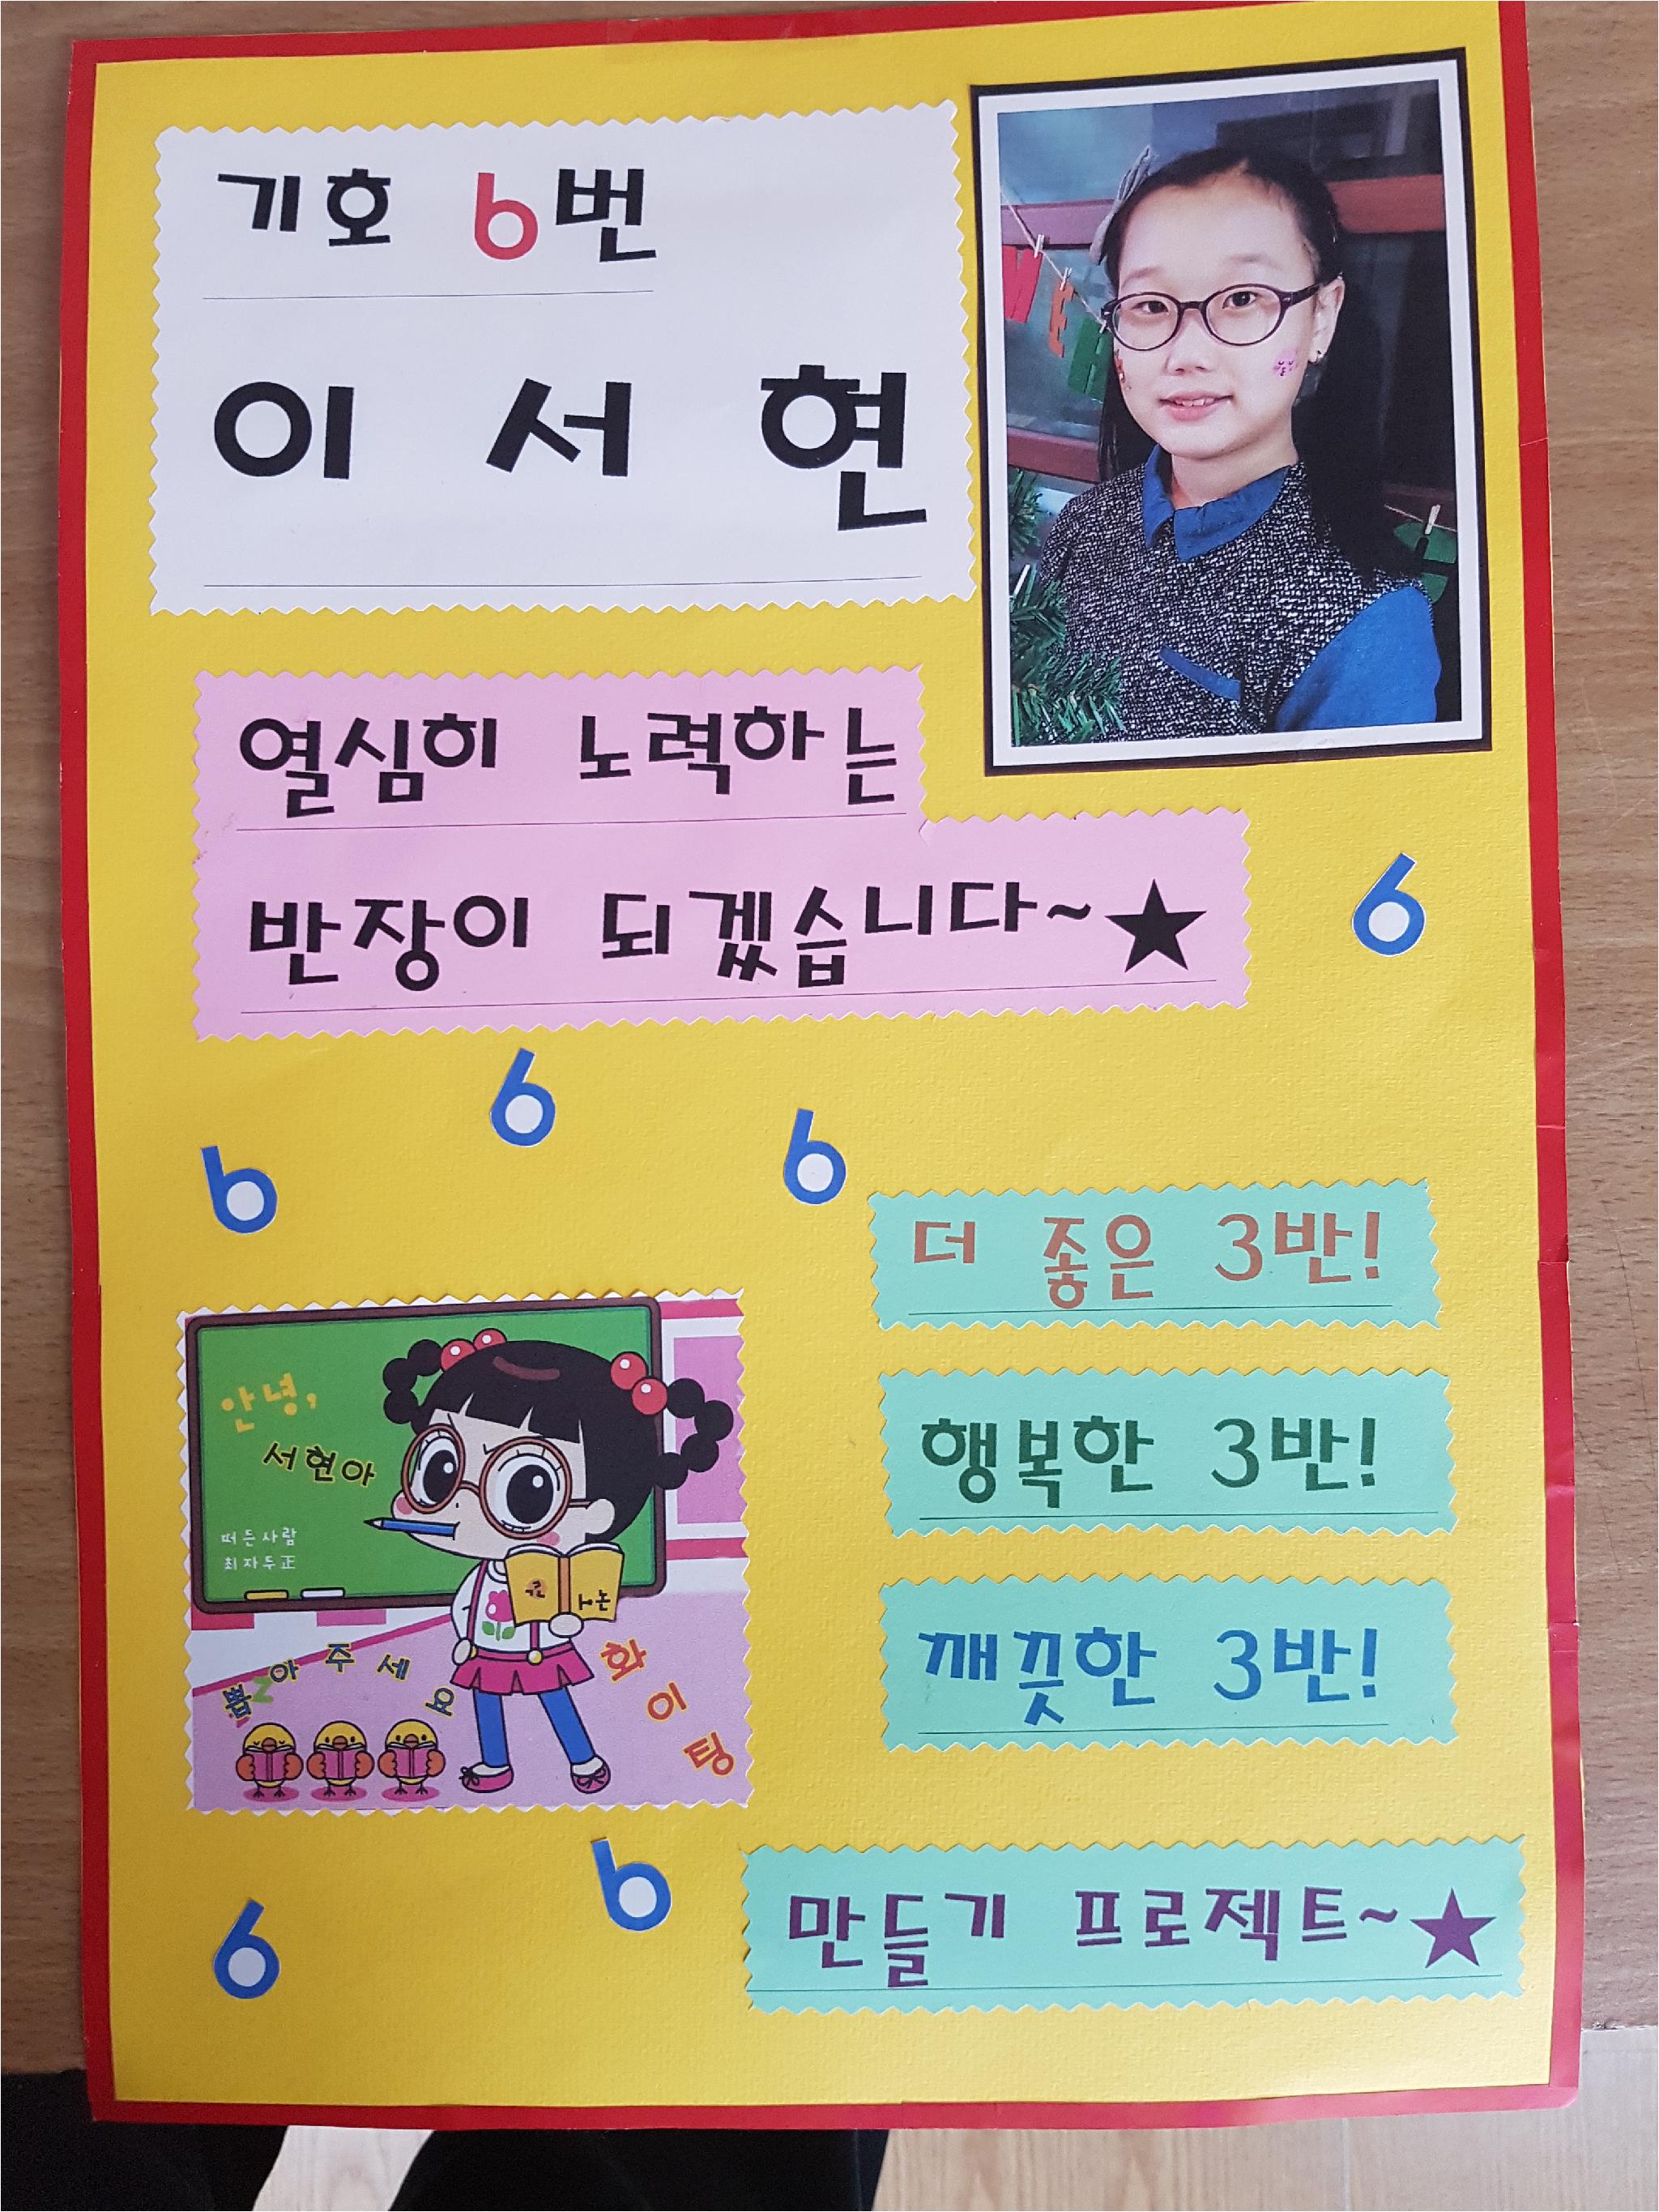 기호 6번
이 서 현
열심히 노력하는
반장이 되겠습니다~★
6
6
6
6
더 좋은 3반!
행복한 3반!
깨끗한 3반!
안녕,
서현아
떠든사람
최자두正
뽑아주세요
화이팅
6
6
만들기 프로젝트~★